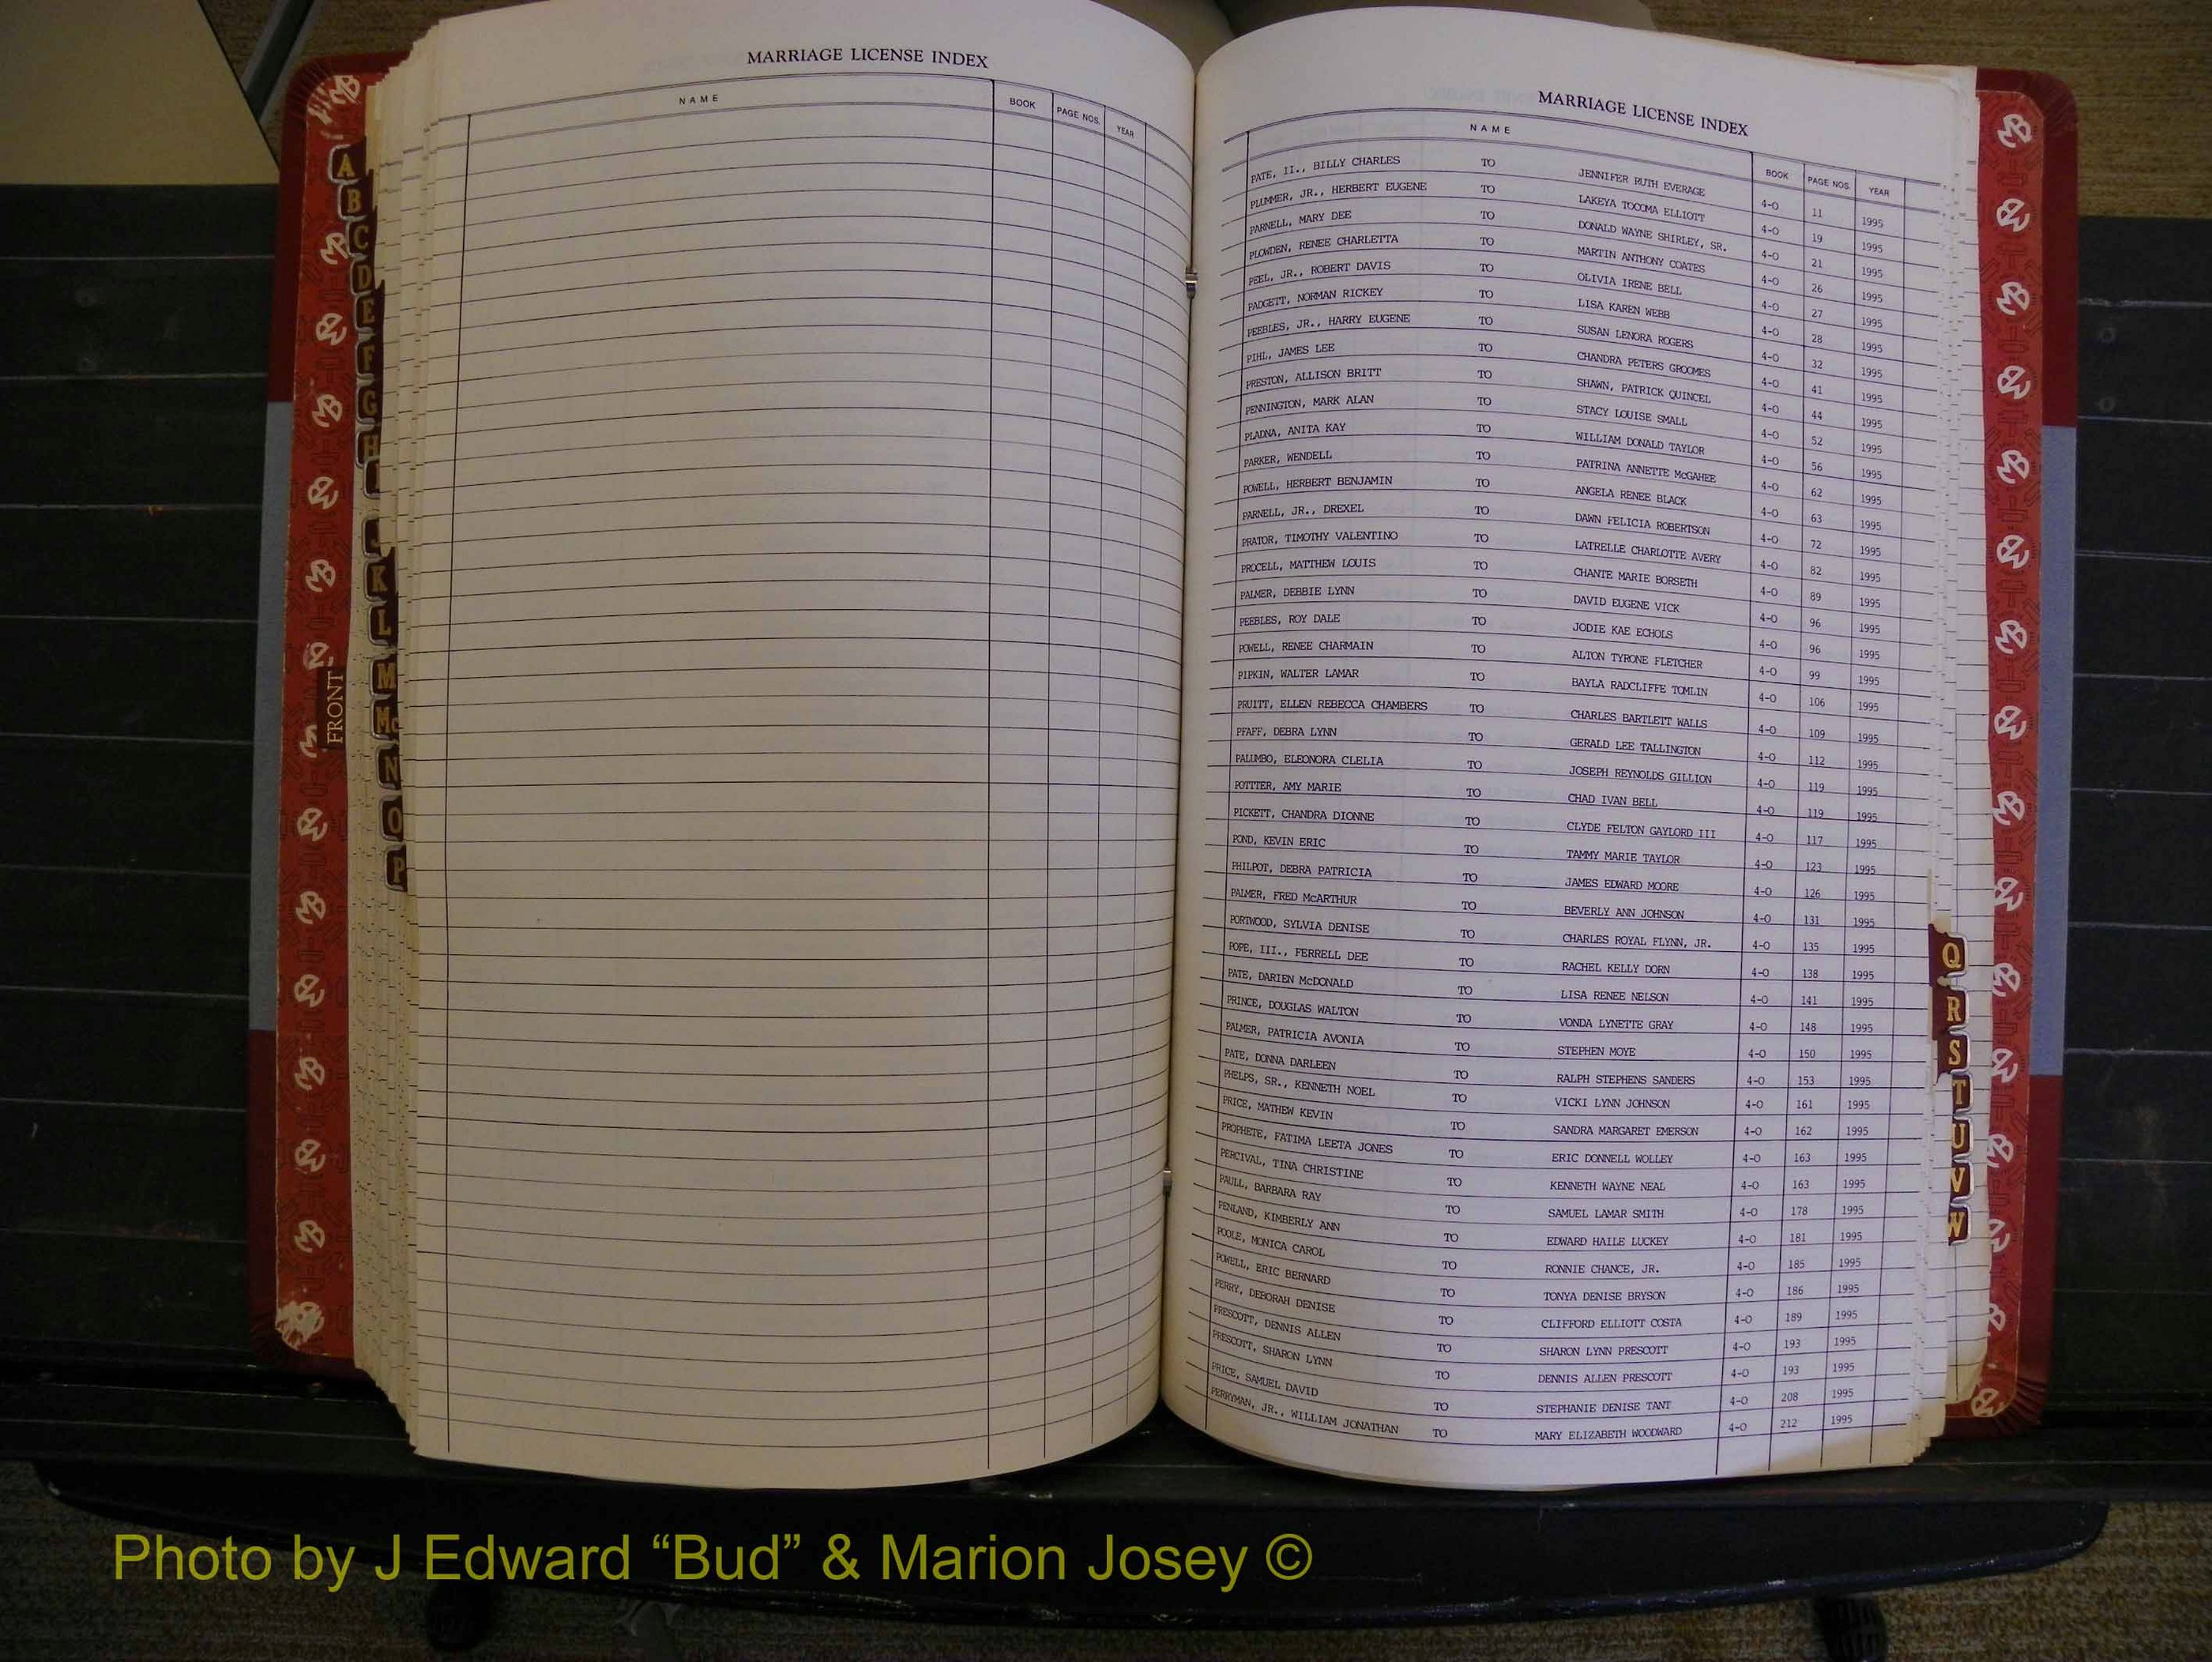 MARRIAGE LICENSE INDEX
NAME BOOK PAGE NOS. YEAR
A
B
C
D
E
F
G
H
J
K
L
M
Mc
N
O
P
FRONT
MARRIAGE LICENSE INDEX
NAME BOOK PAGE NOS. YEAR
PATE, II., BILLY CHARLES TO JENNIFER RUTH EVERAGE 4-O 11 1995
PLUMMER, JR., HERBERT EUGENE TO LAKEYA TOCOMA ELLIOTT 4-O 19 1995
PARNELL, MARY DEE TO DONALD WAYNE SHIRLEY, SR. 4-O 21 1995
PLOWDEN, RENEE CHARLETTA TO MARTIN ANTHONY COATES 4-O 26 1995
PEEL, JR., ROBERT DAVIS TO OLIVIA IRENE BELL 4-O 27 1995
PADGETT, NORMAN RICKEY TO LISA KAREN WEBB 4-O 28 1995
PEEBLES, JR., HARRY EUGENE TO SUSAN LENORA ROGERS 4-O 32 1995
PIHL, JAMES LEE TO CHANDRA PETERS GROOMES 4-O 41 1995
PRESTON, ALLISON BRITT TO SHAWN, PATRICK QUINCEL 4-O 44 1995
PENNINGTON, MARK ALAN TO STACY LOUISE SMALL 4-O 52 1995
PLADNA, ANITA KAY TO WILLIAM DONALD TAYLOR 4-O 56 1995
PARKER, WENDELL TO PATRINA ANNETTE McGAHEE 4-O 62 1995
POWELL, HERBERT BENJAMIN TO ANGELA RENEE BLACK 4-O 63 1995
PARNELL, JR., DREXEL TO DAWN FELICIA ROBERTSON 4-O 72 1995
PRATOR, TIMOTHY VALENTINO TO LATRELLE CHARLOTTE AVERY 4-O 82 1995
PROCELL, MATTHEW LOUIS TO CHANTE MARIE BORSETH 4-O 89 1995
PALMER, DEBBIE LYNN TO DAVID EUGENE VICK 4-O 96 1995
PEEBLES, ROY DALE TO JODIE KAE ECHOLS 4-O 96 1995
POWELL, RENEE CHARMAIN TO ALTON TYRONE FLETCHER 4-O 99 1995
PIPKIN, WALTER LAMAR TO BAYLA RADCLIFFE TOMLIN 4-O 106 1995
PRUITT, ELLEN REBECCA CHAMBERS TO CHARLES BARTLETT WALLS 4-O 109 1995
PFAFF, DEBRA LYNN TO GERALD LEE TALLINGTON 4-O 112 1995
PALUMBO, ELEONORA CLELIA TO JOSEPH REYNOLDS GILLION 4-O 119 1995
POTTTER, AMY MARIE TO CHAD IVAN BELL 4-O 119 1995
PICKETT, CHANDRA DIONNE TO CLYDE FELTON GAYLORD III 4-O 117 1995
POND, KEVIN ERIC TO TAMMY MARIE TAYLOR 4-O 123 1995
PHILPOT, DEBRA PATRICIA TO JAMES EDWARD MOORE 4-O 126 1995
PALMER, FRED McARTHUR TO BEVERLY ANN JOHNSON 4-O 131 1995
PORTWOOD, SYLVIA DENISE TO CHARLES ROYAL FLYNN, JR. 4-O 135 1995
POPE, III., FERRELL DEE TO RACHEL KELLY DORN 4-O 138 1995
PATE, DARIEN McDONALD TO LISA RENEE NELSON 4-O 141 1995
PRINCE, DOUGLAS WALTON TO VONDA LYNETTE GRAY 4-O 148 1995
PALMER, PATRICIA AVONIA TO STEPHEN MOYE 4-O 150 1995
PATE, DONNA DARLEEN TO RALPH STEPHENS SANDERS 4-O 153 1995
PHELPS, SR., KENNETH NOEL TO VICKI LYNN JOHNSON 4-O 161 1995
PRICE, MATHEW KEVIN TO SANDRA MARGARET EMERSON 4-O 162 1995
PROPHETE, FATIMA LEETA JONES TO ERIC DONNELL WOLLEY 4-O 163 1995
PERCIVAL, TINA CHRISTINE TO KENNETH WAYNE NEAL 4-O 163 1995
PAULL, BARBARA RAY TO SAMUEL LAMAR SMITH 4-O 178 1995
PENLAND, KIMBERLY ANN TO EDWARD HAILE LUCKEY 4-O 181 1995
POOLE, MONICA CAROL TO RONNIE CHANCE, JR. 4-O 185 1995
POWELL, ERIC BERNARD TO TONYA DENISE BRYSON 4-O 186 1995
PERRY, DEBORAH DENISE TO CLIFFORD ELLIOTT COSTA 4-O 189 1995
PRESCOTT, DENNIS ALLEN TO SHARON LYNN PRESCOTT 4-O 193 1995
PRESCOTT, SHARON LYNN TO DENNIS ALLEN PRESCOTT 4-O 193 1995
PRICE, SAMUEL DAVID TO STEPHANIE DENISE TANT 4-O 208 1995
PERRYMAN, JR., WILLIAM JONATHAN TO MARY ELIZABETH WOODWARD 4-O 212 1995
Q
R
S
T
U
V
W
Photo by J Edward “Bud” & Marion Josey ©